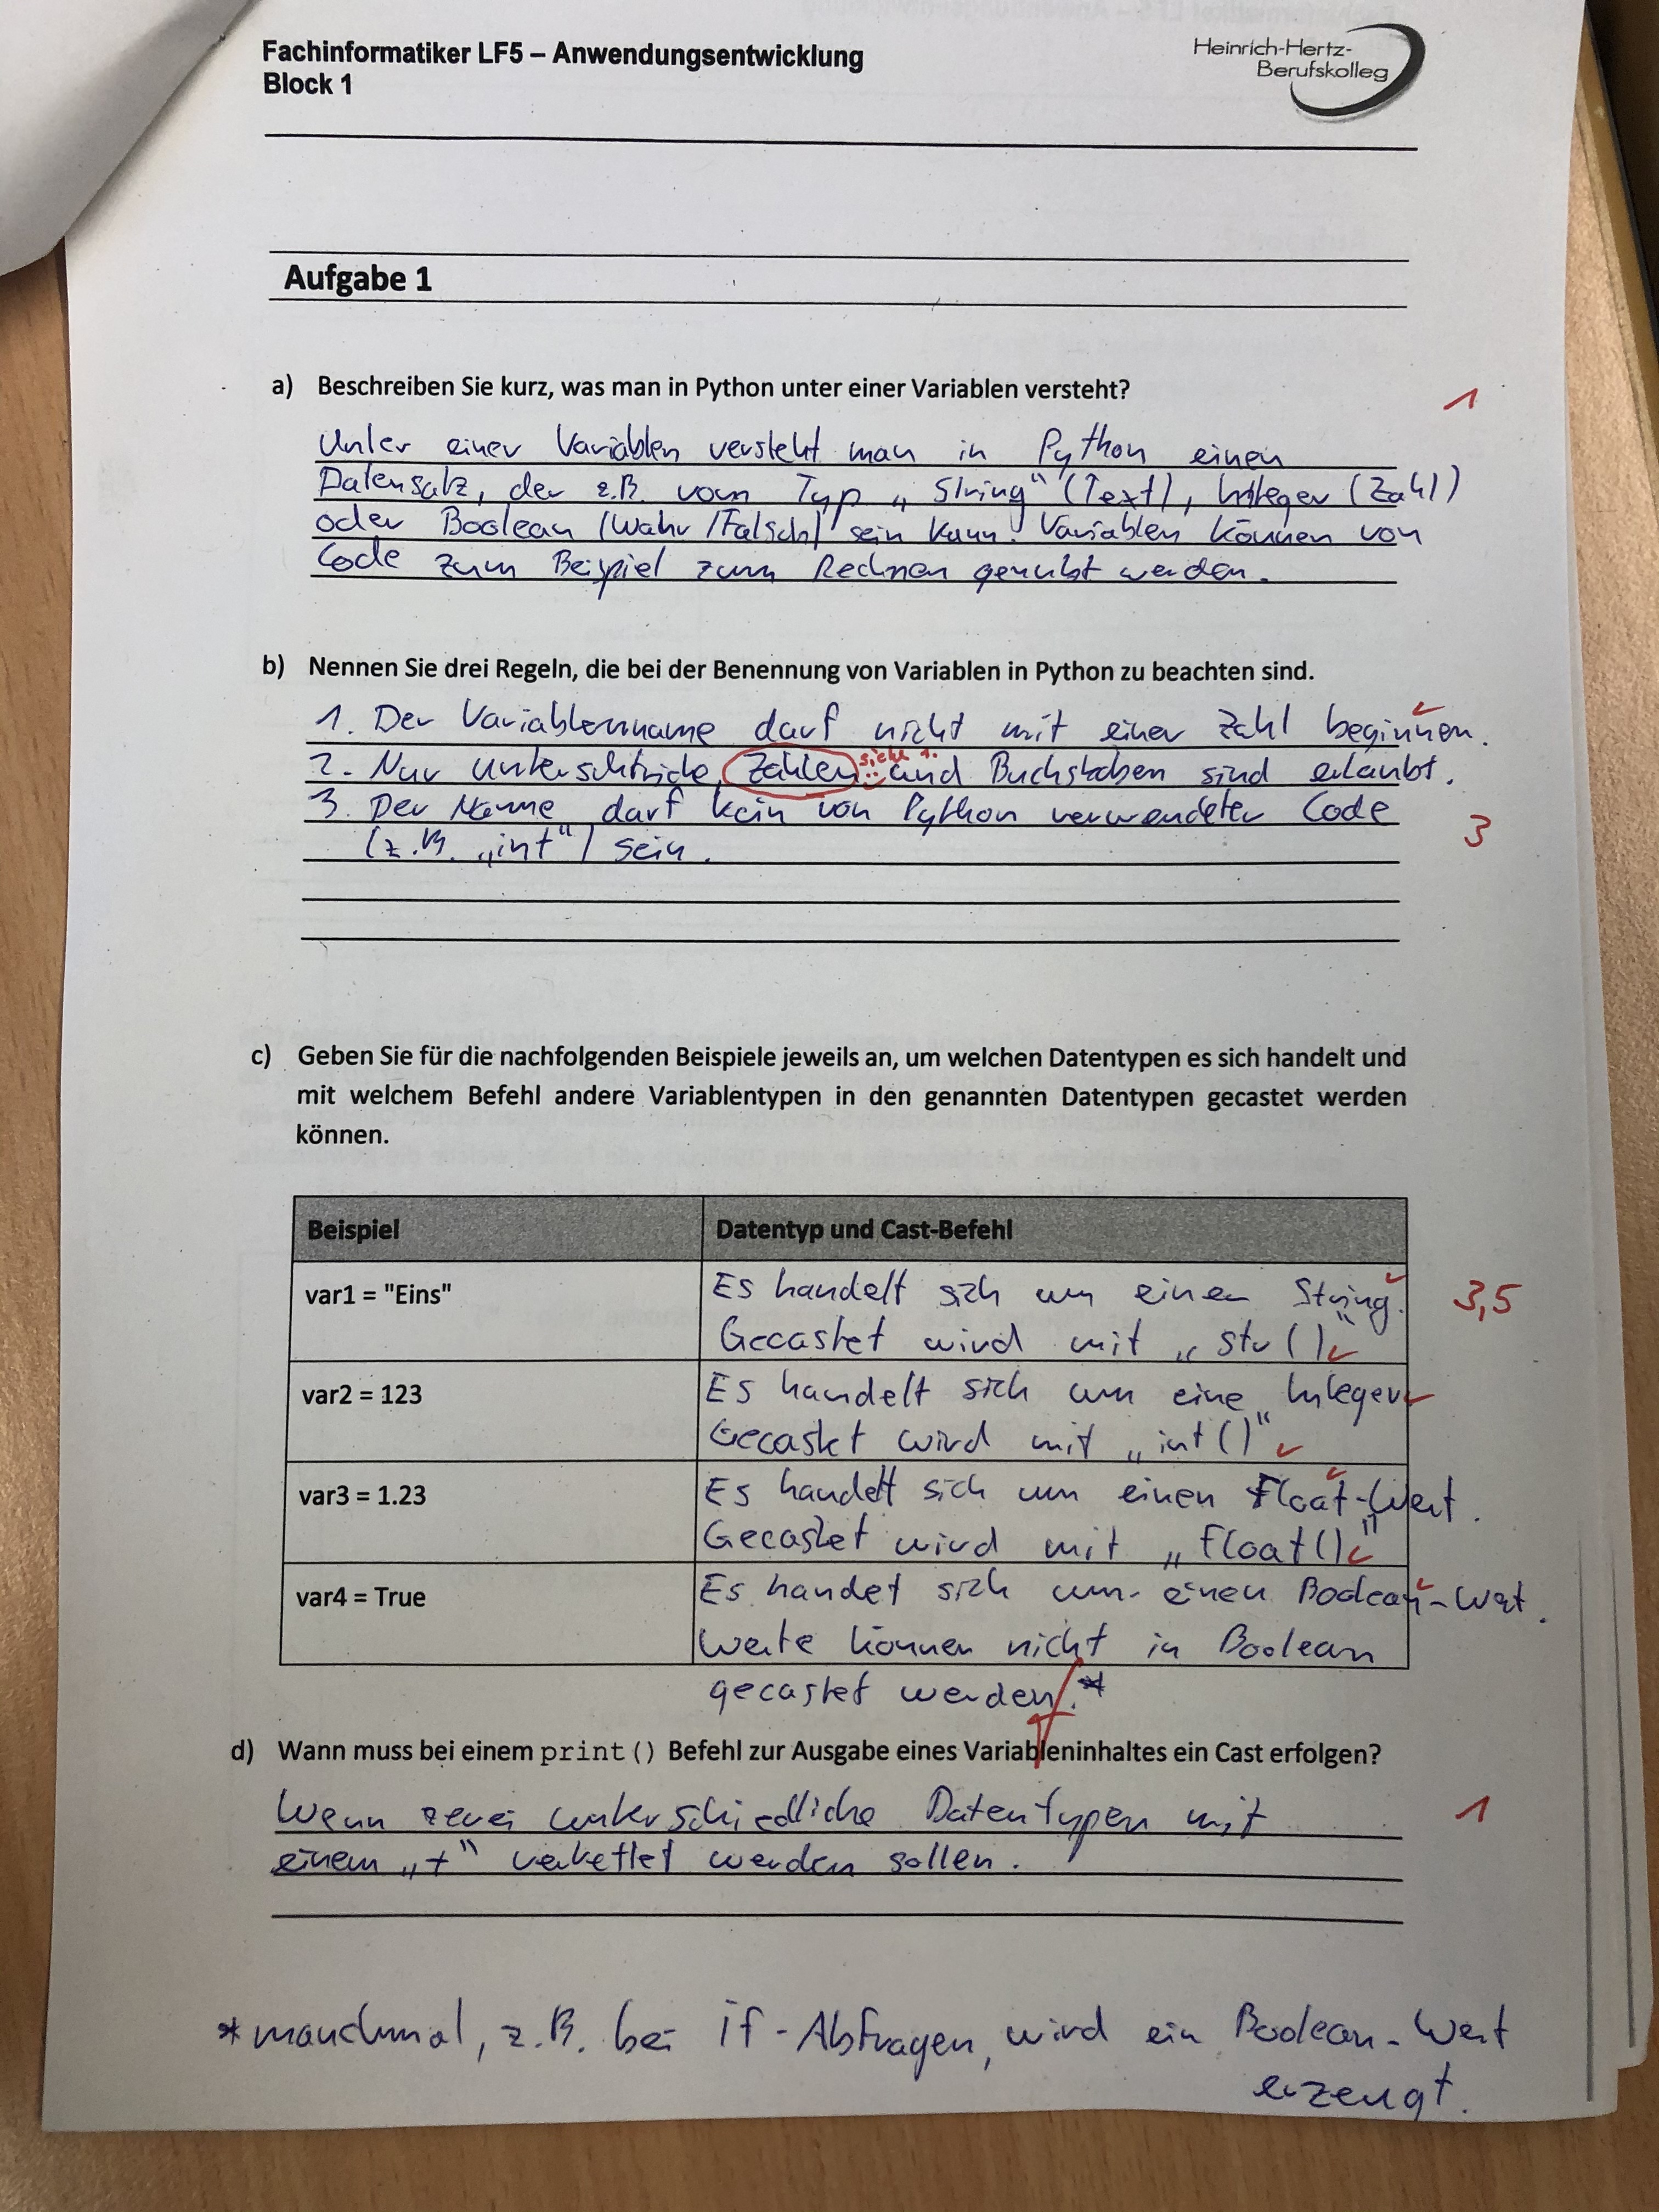 Fachinformatiker LF5 – Anwendungsentwicklung
Block 1
Heinrich-Hertz-
Berufskolleg
Aufgabe 1
a) Beschreiben Sie kurz, was man in Python unter einer Variablen versteht?
1
Unter einer Variablen versteht man in Python einen
Datensatz, der z.B. vom Typ „String" (Text), Integer (Zahl)
oder Boolean (Wahr/Falsch) sein kann. Variablen können von
Code zum Beispiel zum Rechnen genutzt werden.
b) Nennen Sie drei Regeln, die bei der Benennung von Variablen in Python zu beachten sind.
1. Der Variablenname darf nicht mit einer Zahl beginnen.
siehe 1.
2. Nur Unterschtriche, Zahlen und Buchstaben sind erlaubt.
3. Der Name darf kein von Python verwendeter Code
(z.B. „int") sein.
3
c) Geben Sie für die nachfolgenden Beispiele jeweils an, um welchen Datentypen es sich handelt und
mit welchem Befehl andere Variablentypen in den genannten Datentypen gecastet werden
können.
Beispiel Datentyp und Cast-Befehl
var1 = "Eins" Es handelt sich um einen String.
Gecastet wird mit „str()"
3,5
var2 = 123 Es handelt sich um eine Integer
Gecastet wird mit „int()"
var3 = 1.23 Es handelt sich um einen Float-Wert.
Gecastet wird mit „float()"
var4 = True Es handet sich um einen Boolean-Wert.
Werte können nicht in Boolean
gecastet werden.*
f
d) Wann muss bei einem print() Befehl zur Ausgabe eines Variableninhaltes ein Cast erfolgen?
Wenn zwei unterschiedliche Datentypen mit
1
einem „+" verkettet werden sollen.
*manchmal, z.B. bei if-Abfragen, wird ein Boolean-Wert
erzeugt.